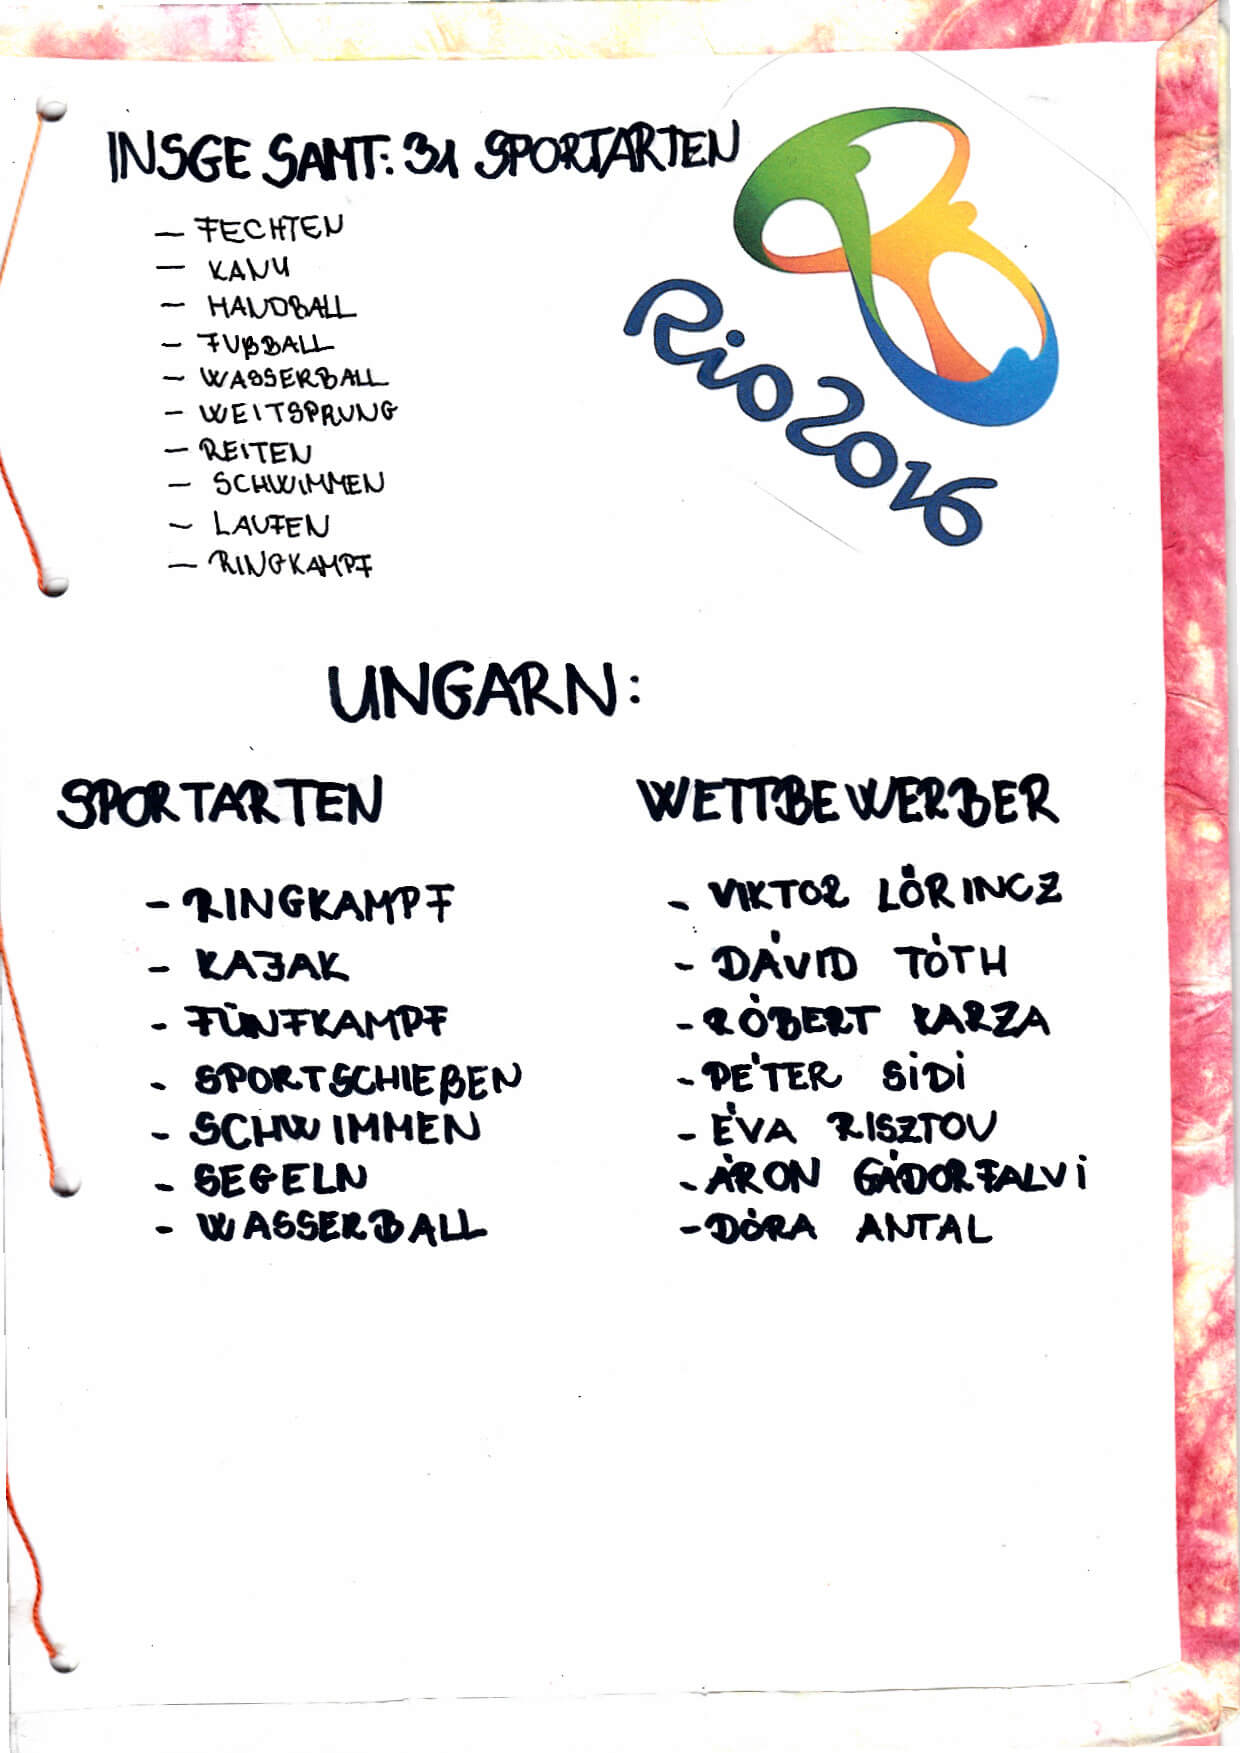 INSGESAMT: 31 SPORTARTEN
– FECHTEN
– KANU
– HANDBALL
– FUßBALL
– WASSERBALL
– WEITSPRUNG
– REITEN
– SCHWIMMEN
– LAUFEN
– RINGKAMPF
Rio2016
UNGARN:
SPORTARTEN
- RINGKAMPF
- KAJAK
- FÜNFKAMPF
- SPORTSCHIEßEN
- SCHWIMMEN
- SEGELN
- WASSERBALL
WETTBEWERBER
- VIKTOR LÖRINCZ
- DÁVID TÓTH
- RÓBERT KARZA
- PÉTER SIDI
- ÉVA RISZTOV
- ÁRON GÁDORFALVI
- DÓRA ANTAL